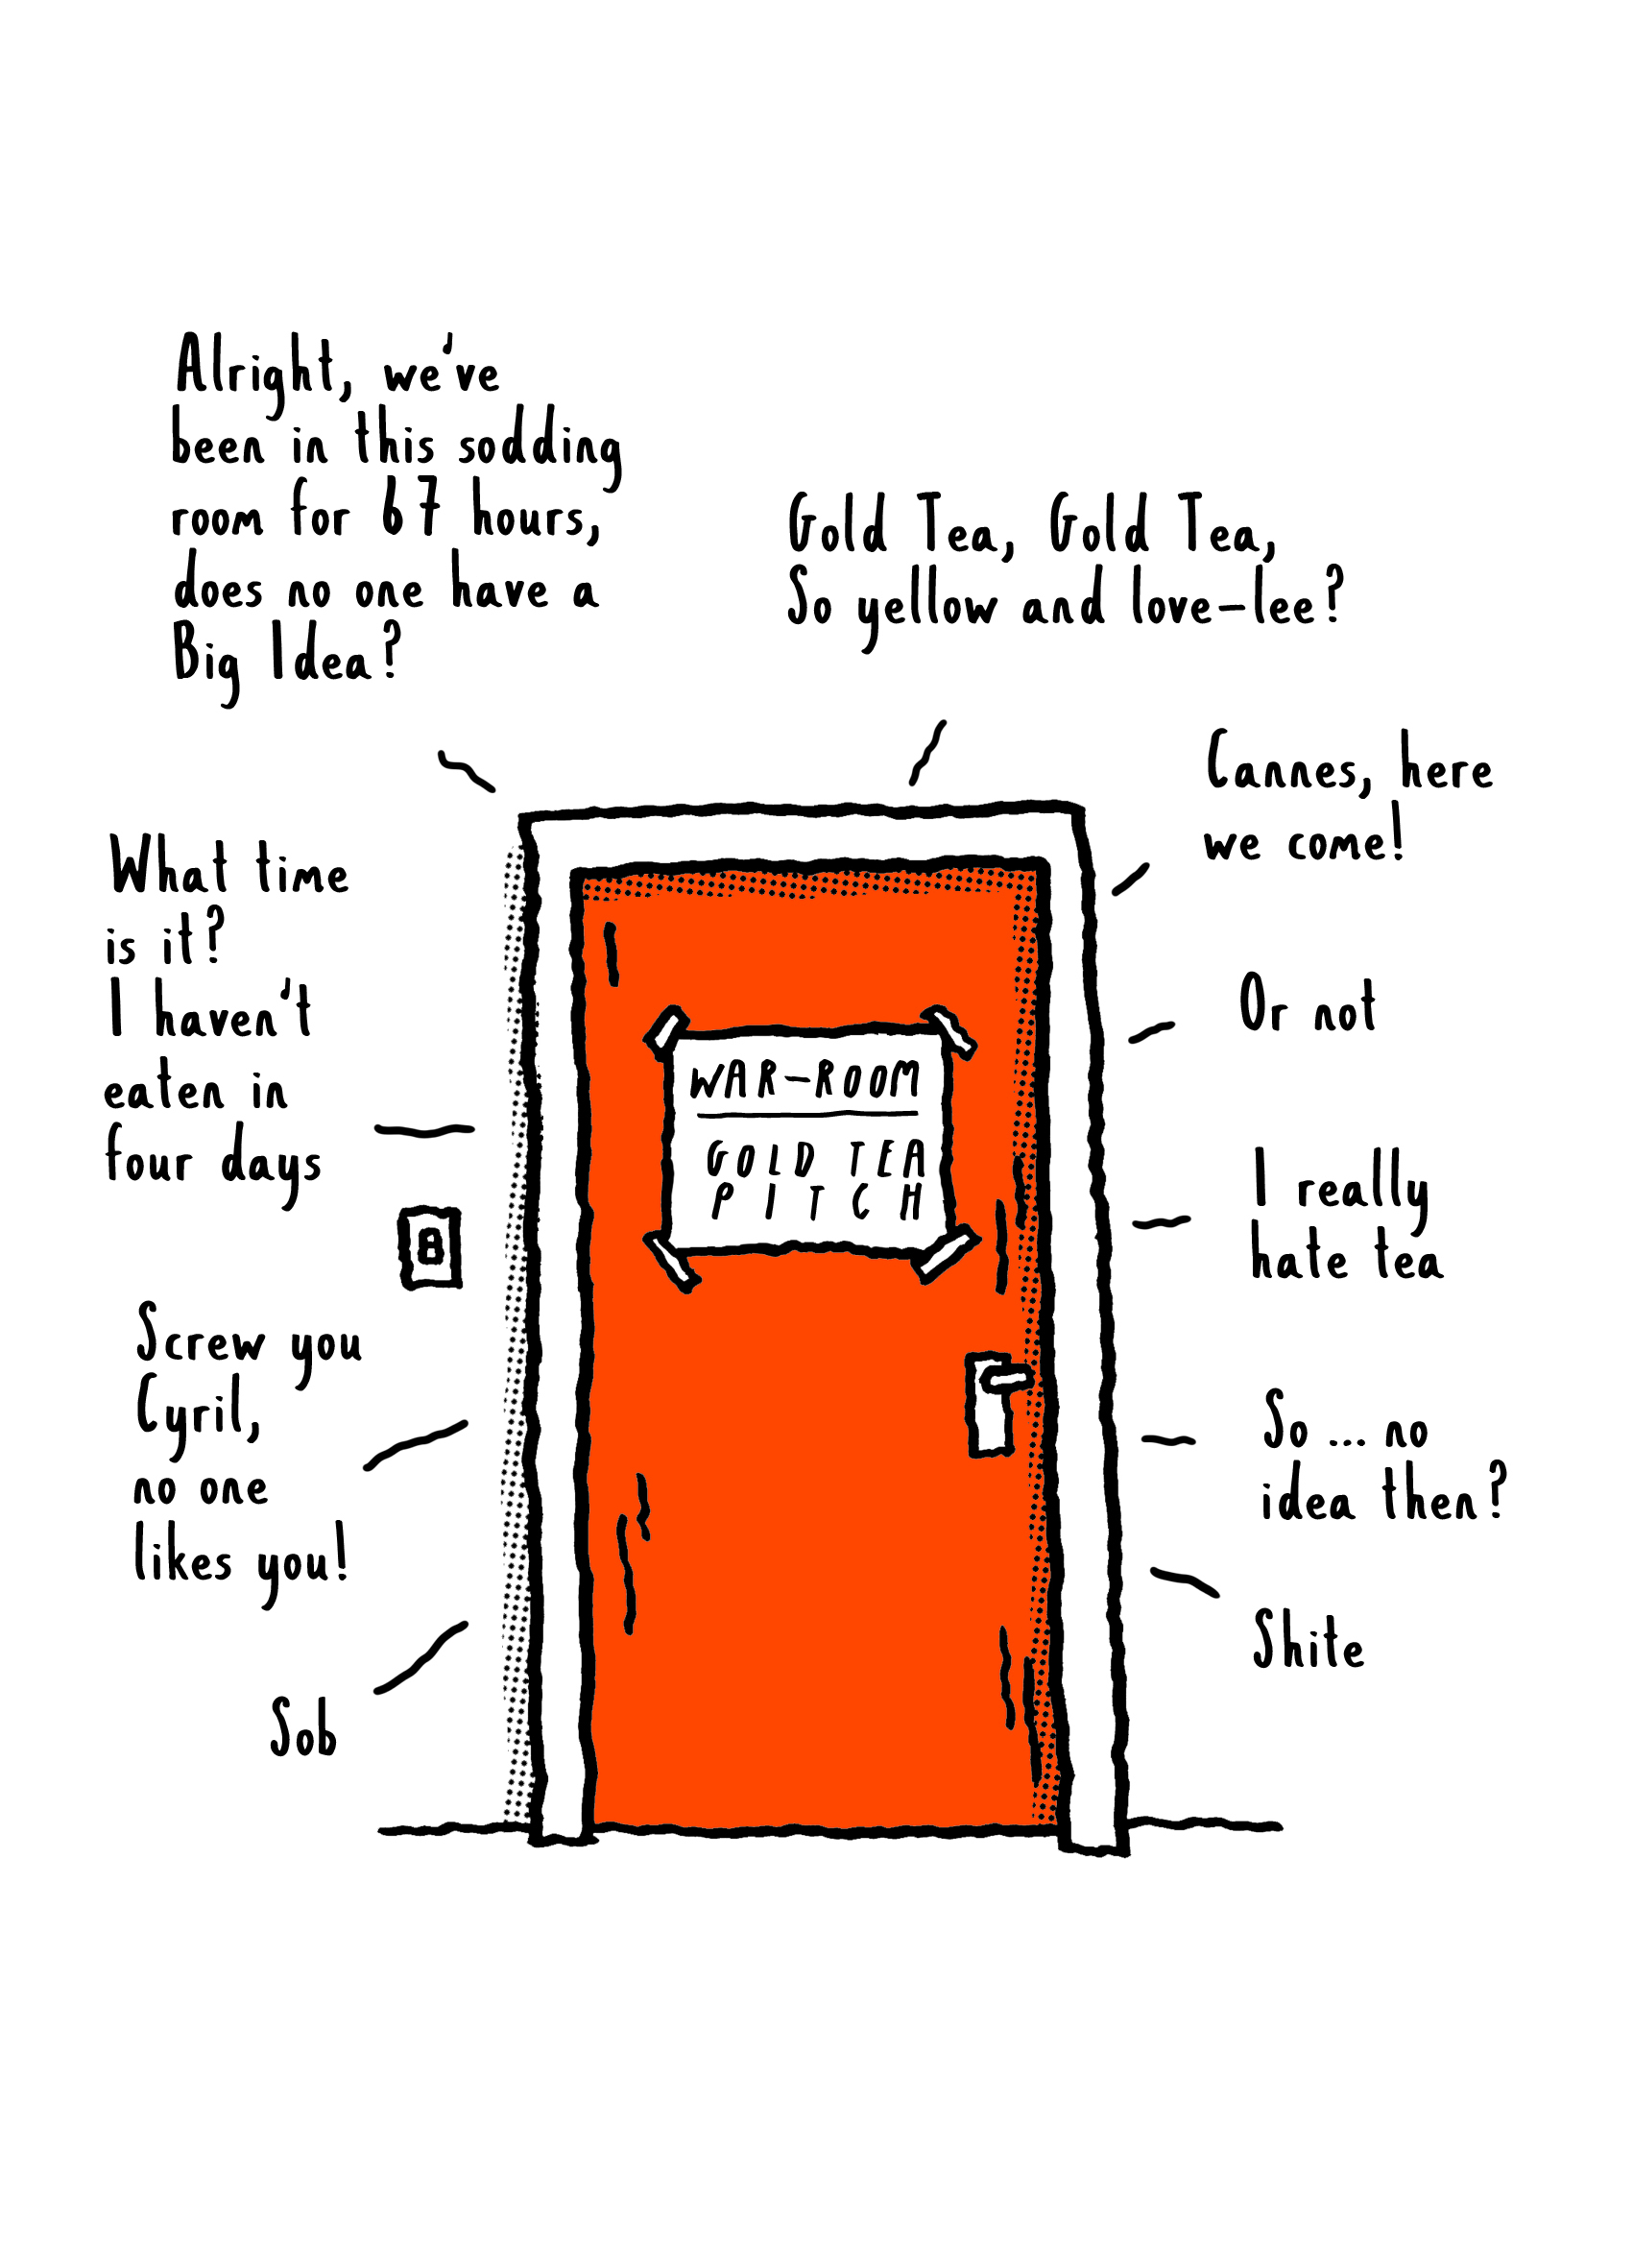 Alright, we've
been in this sodding
room for 67 hours,
does no one have a
Big Idea?
Gold Tea, Gold Tea,
So yellow and love-lee?
Cannes, here
we come!
What time
is it?
I haven't
eaten in
four days
Or not
WAR-ROOM
GOLD TEA
PITCH
I really
hate tea
Screw you
Cyril,
no one
likes you!
So ... no
idea then?
Shite
Sob